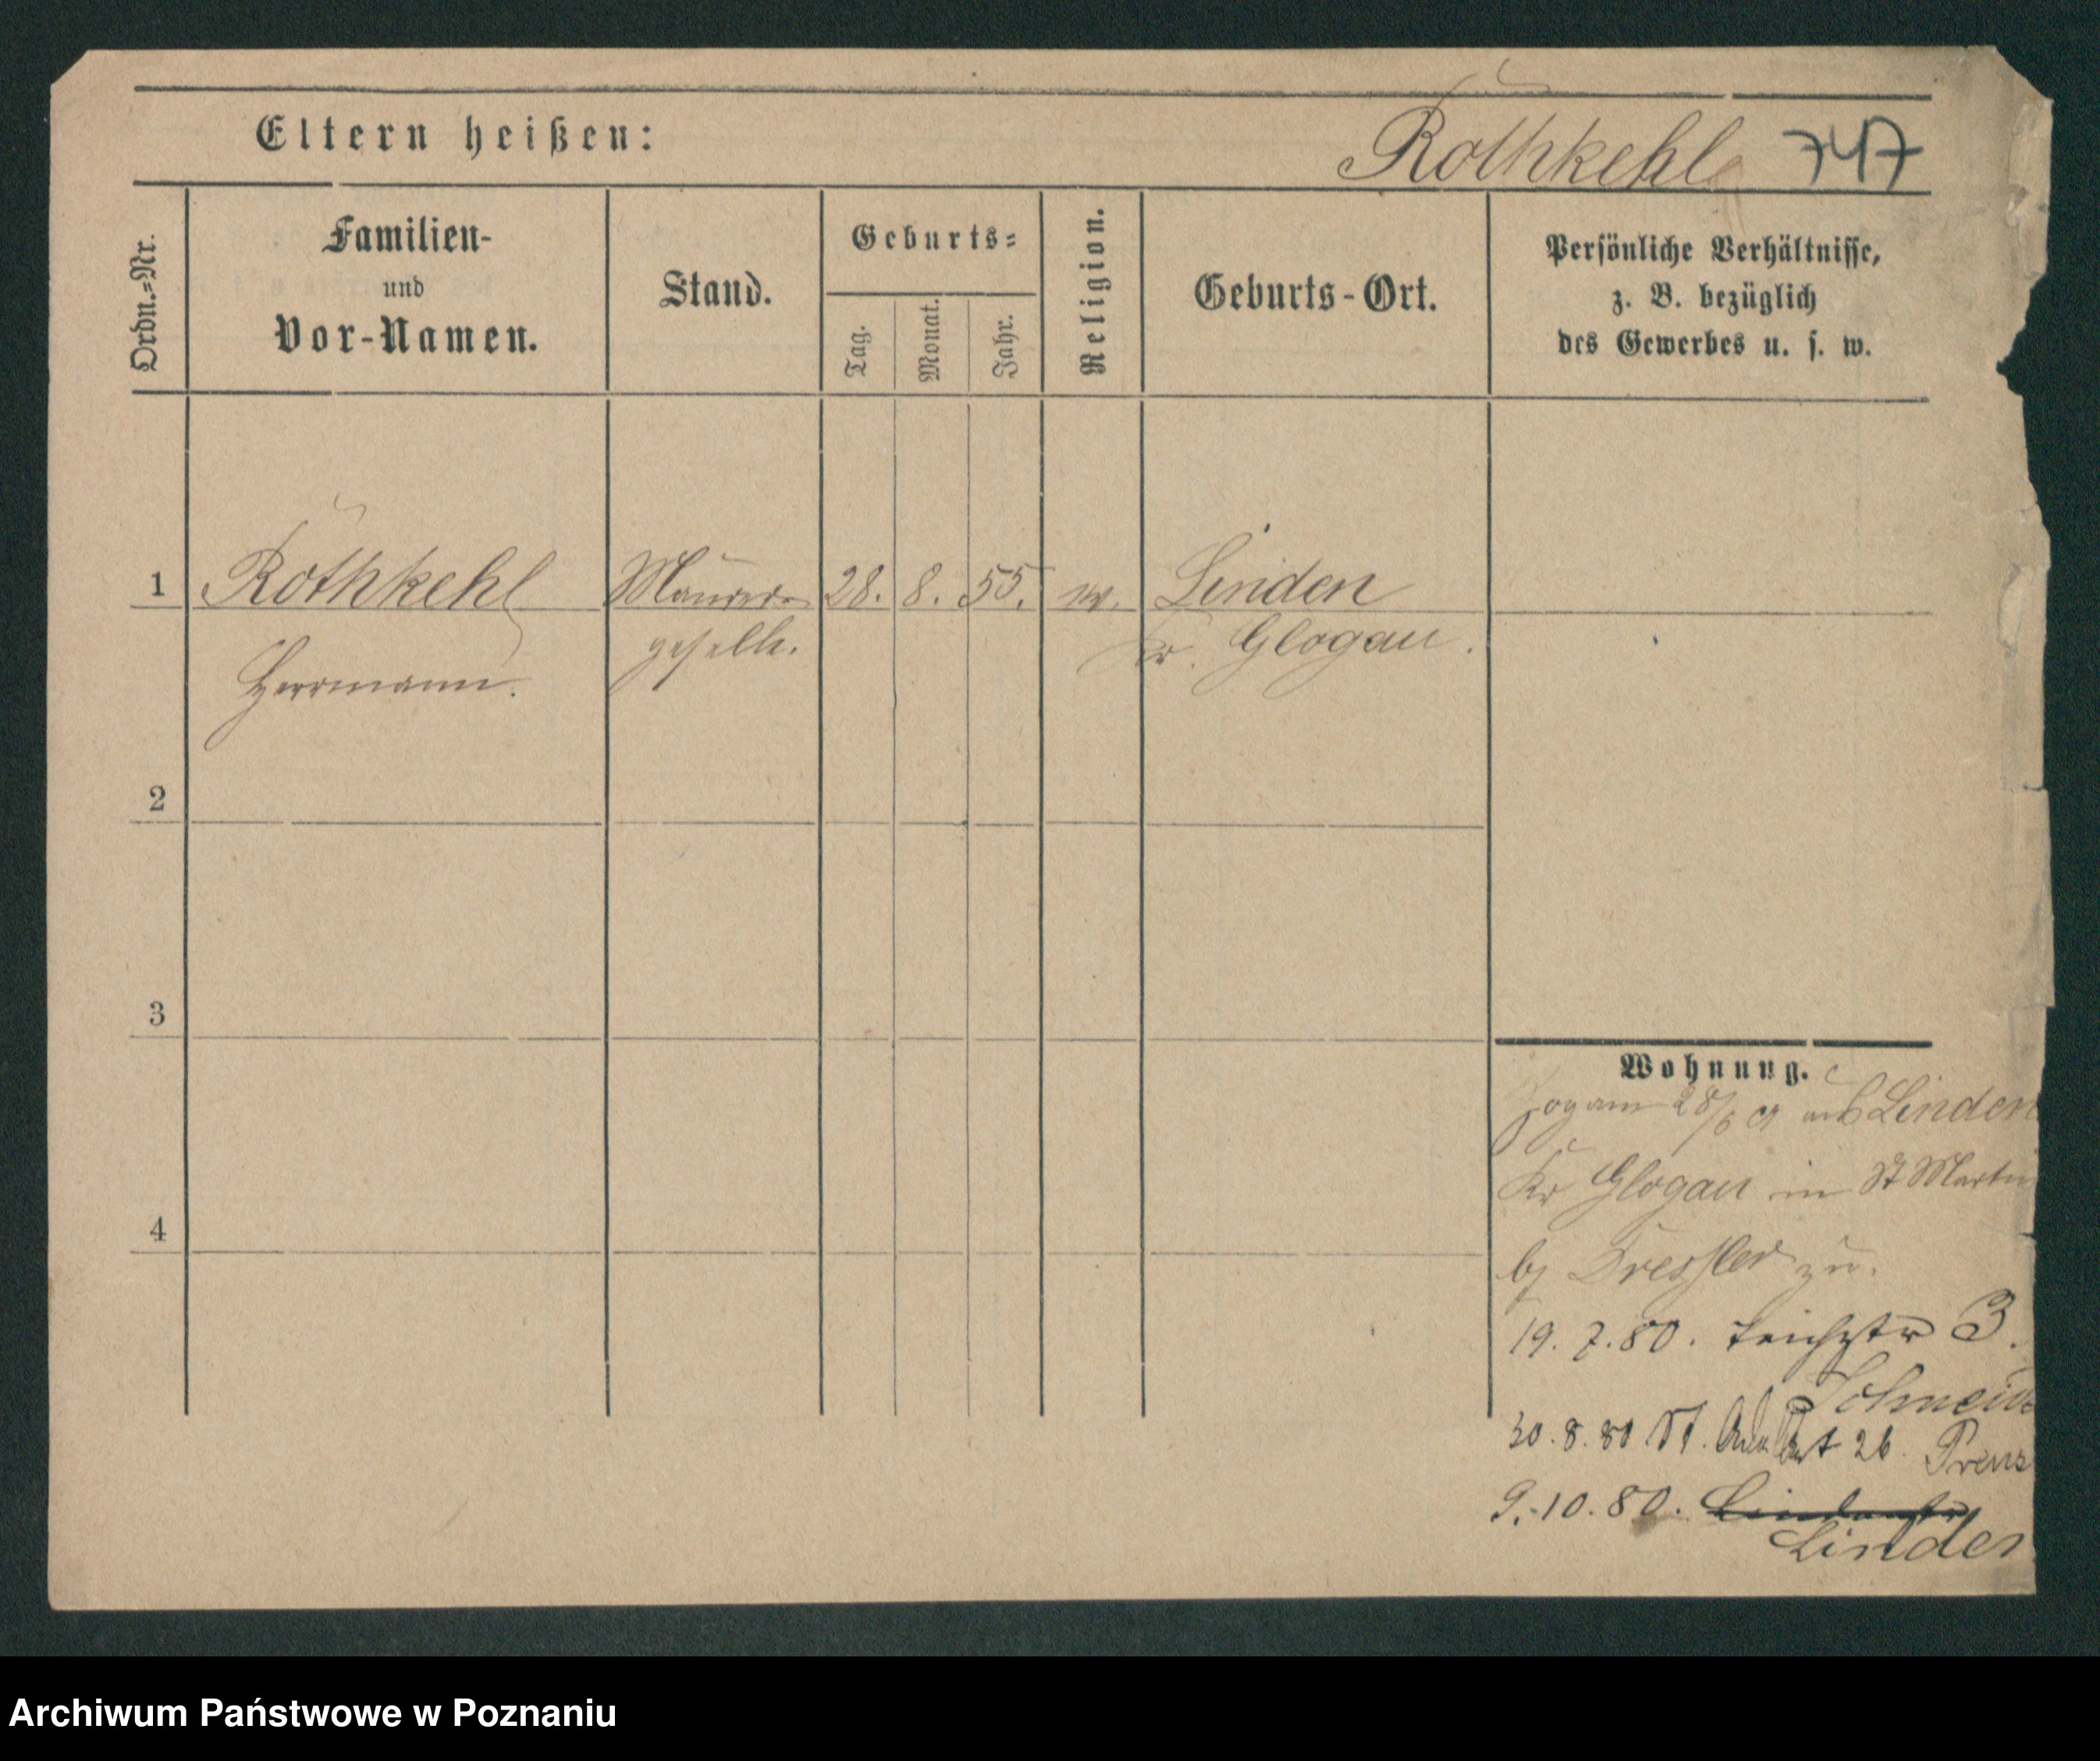 Eltern heißen:
Rothkehl 747
Ordn.=Nr.
Familien-
und
Vor-Namen.
Stand.
Geburts=
Tag.
Monat.
Jahr.
Religion.
Geburts-Ort.
Persönliche Verhältnisse,
z. B. bezüglich
des Gewerbes u. s. w.
1 Rothkehl Maurer- 28. 8. 55. ev. Linden
geselle. Kr. Glogau.
Herrmann.
2
3
4
Wohnung.
Zog am 28/6 aus Linden
Kr Glogau in St Martin
by Dressler zu.
19. 7. 80. Teichstr 3.
30. 8. 80 St. 26.
9.-10. 80. Lindenstr
Linden
Archiwum Państwowe w Poznaniu